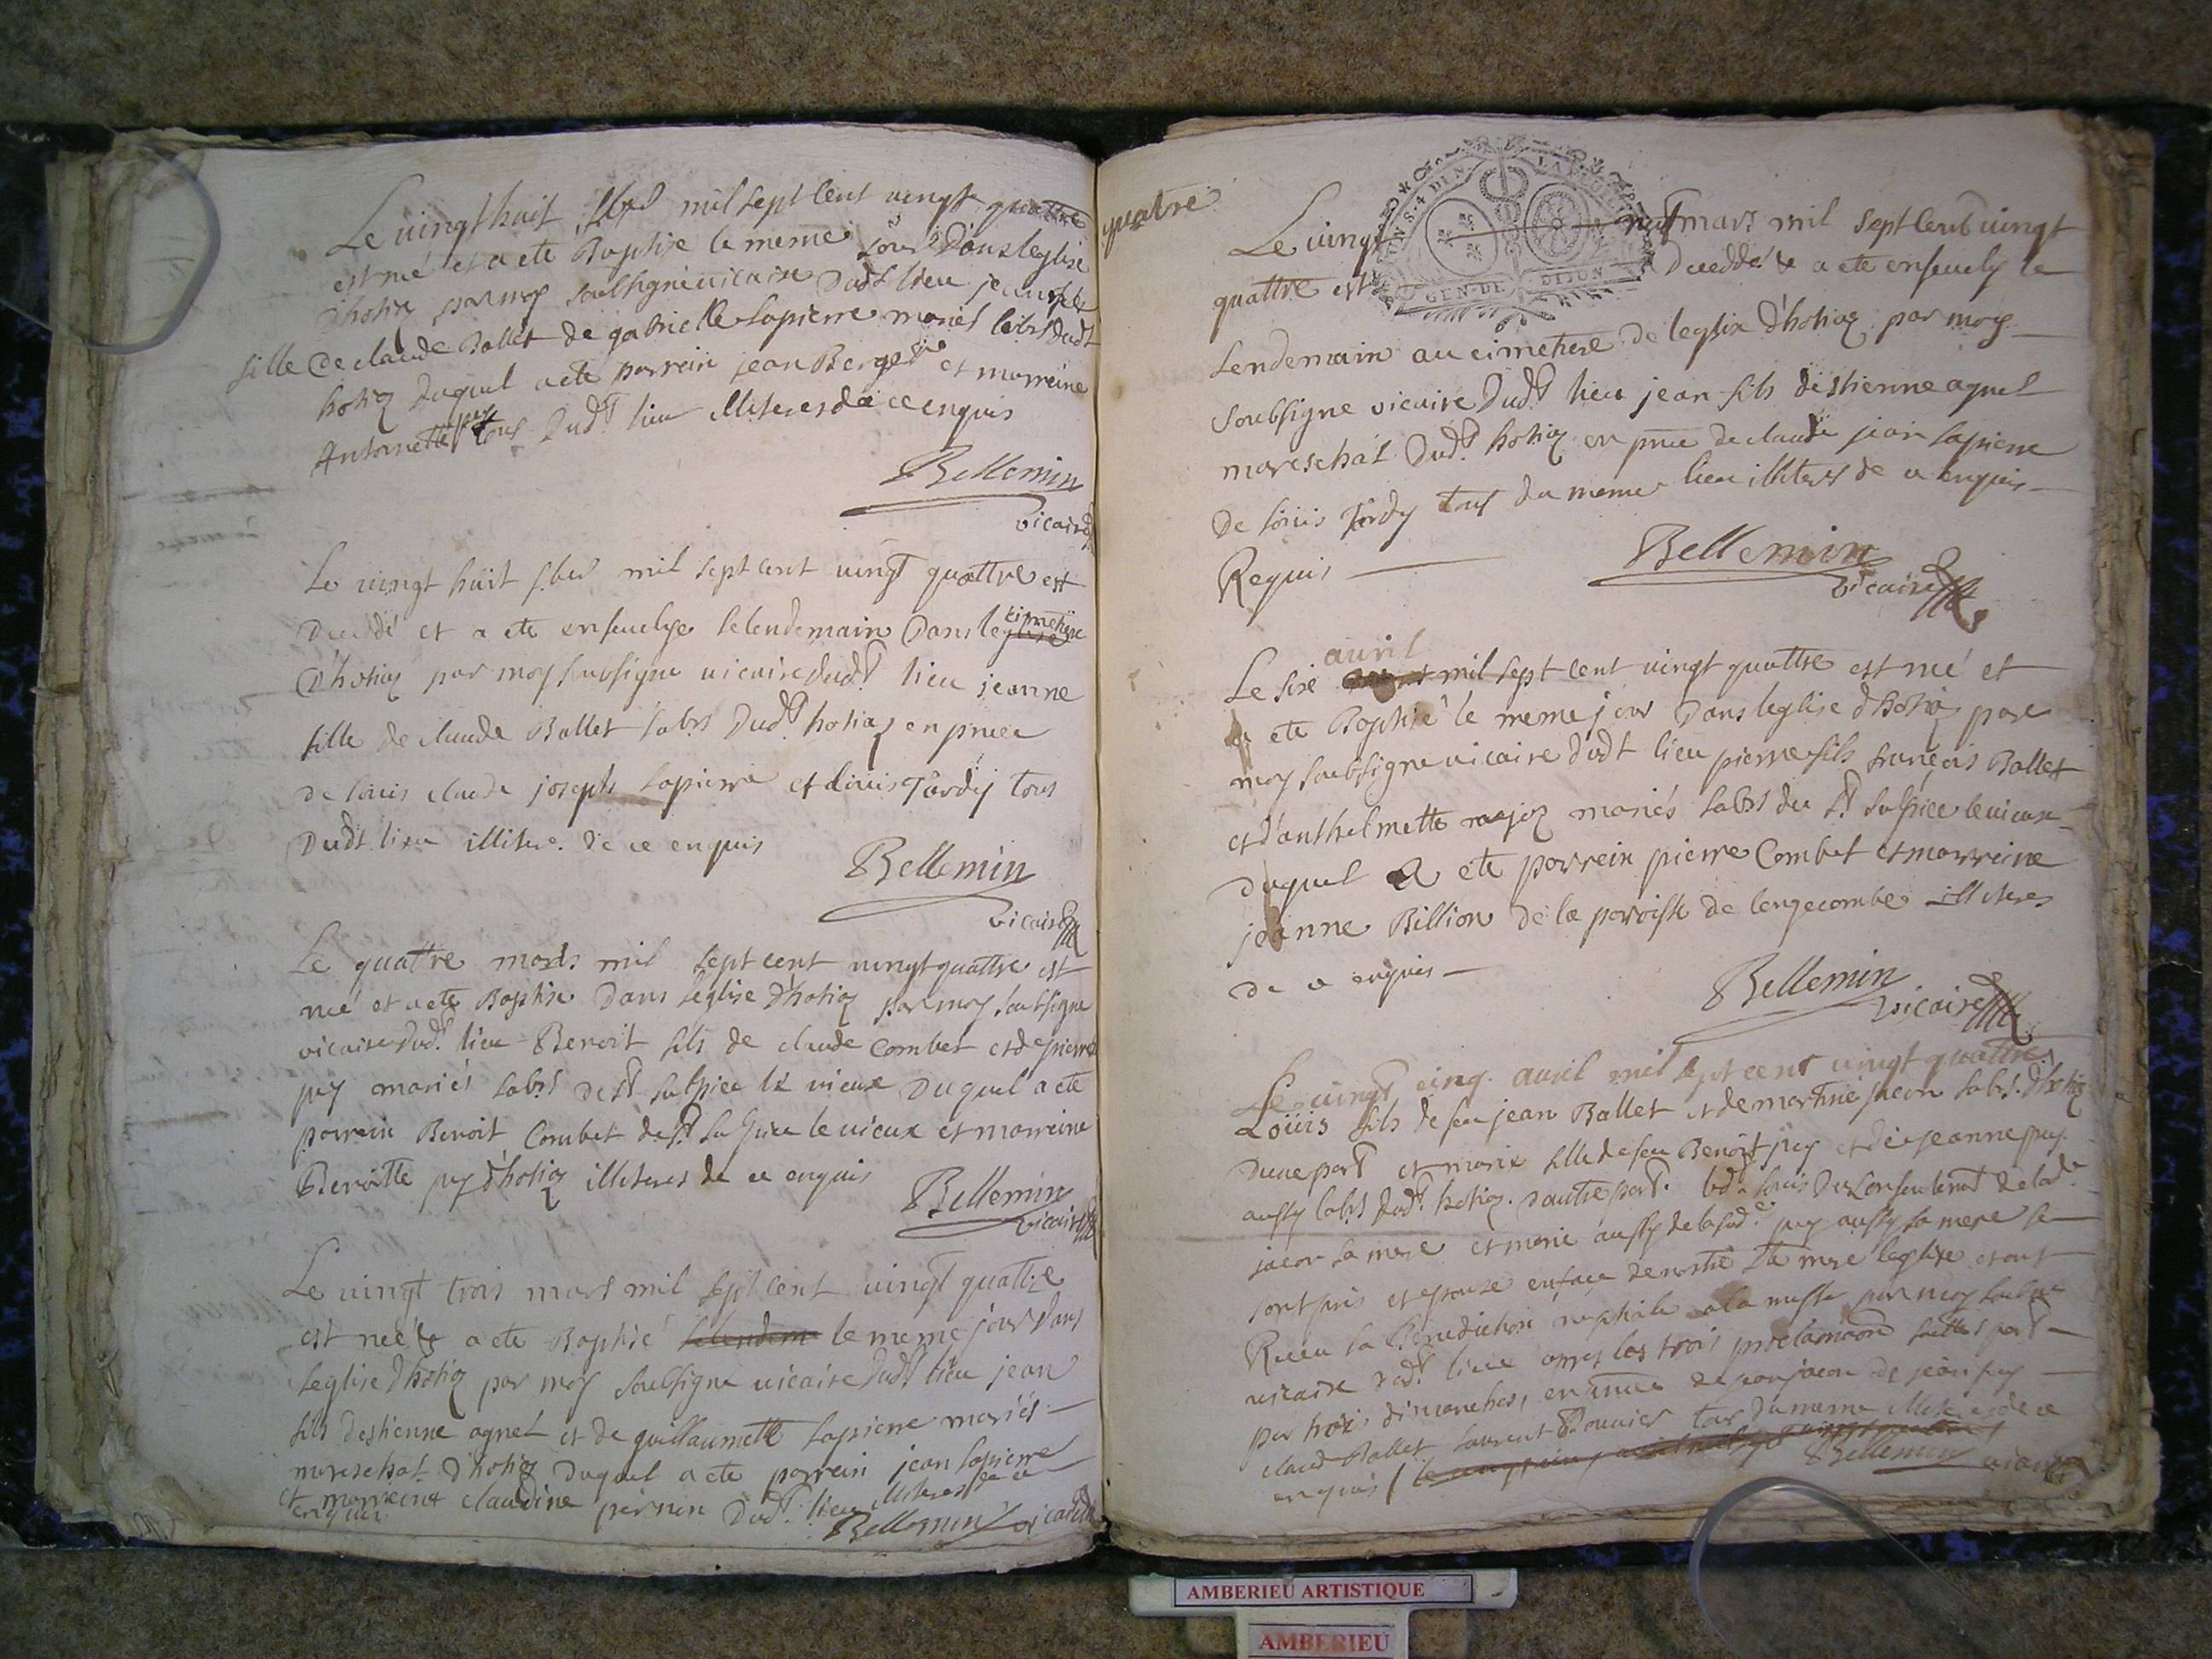 Le vingt huit mil sept cent vingt quattre
est né et a ete Baptise le meme Jour Dans leglise
d'hotiaz par moy soubsigne vicaire Dudt lieu jeanne
fille de claude Ballet de gabrielle lapierre mariés labrs dudt
hotiaz Duquel a ete parrein jean Berger et marreine
Antoinette puy tous Dudt lieu illiteres de ce enquis
Bellemin
vicaire
Le vingt huit fber mil sept cent vingt quattre est
Decedé et a ete enseuelye le lendemain Dans leglise cimetiere
d'hotiaz par moy soubsigne vicaire dudt lieu jeanne
fille de claude Ballet labrs Dudt hotiaz en pnce
de louis claude joseph lapierre et louis Tardy tous
Dudt lieu illitere de ce enquis
Bellemin
vicaire
Le quattre mars mil sept cent vingt quattre est
né et a ete Baptise Dans leglise d'hotiaz par moy soubsigne
vicaire Dudt lieu Benoit fils de claude Combet et de pierre
puy mariés labrs de St sulpice le vieux Duquel a ete
parrein Benoit Combet de St sulpice le vieux et marreine
Benoitte puy d'hotiaz illiteres de ce enquis
Bellemin
vicaire
Le vingt trois mars mil sept cent vingt quattre
est neé & a ete Baptisé le lendem le meme jour dans
leglise d'hotiaz par moy soubsigne vicaire Dudt lieu jean
fils destienne agnel et de guillaumette lapierre mariés
mareschal d'hotiaz Duquel a ete parrein jean lapierre
et marreine claudine pernin Dudt lieu illiteres de ce
enquis
Bellemin vicaire
quatre
GEN·DE DIJON
Le vingt neuf mars mil sept cent vingt
quattre est Decedde & a ete enseuely le
lendemain au cimetiere de leglise d'hotiaz par moy
soubsigne vicaire Dudt lieu jean fils destienne agnel
mareschal Dudt hotiaz en pnce de claude jean lapierre
De louis Tardy tous du meme lieu illiteres de ce enquis
Requis
Bellemin
vicaire
Le sixe avril mil sept cent vingt quattre est né et
a ete Baptisé le meme jour Dans leglise d'hotiaz par
moy soubsigne vicaire dudt lieu pierre fils françois Ballet
et d'anthelmette mariés labrs du St sulpice le vieux
duquel a ete parrein pierre Combet et marreine
jeanne Billion de la paroisse de longecombe illiteres
de ce enquis
Bellemin
vicaire
Le vingt cinq avril mil sept cent vingt quattre
Loüis fils de feu jean Ballet et de martine jacon labrs d'hotiaz
Dune part et marie fille de feu Benoit puy et de jeanne puy
aussy labrs Dudt hotiaz dautre part led louis Du Consentement de lad
jacon sa mere et marie aussy de lad puy aussy sa mere se
sont pris et epouse en face de nostre Ste mere leglise et ont
Receu la Benediction nuptiale a la messe par moy soubne
vicaire dudt lieu apres les trois proclamaons faittes
par trois dimanches, en pnce de jean jacon de jean puy
claude Ballet laurent Bouvier tous du meme illiteres de ce
enquis
Bellemin vicaire
AMBERIEU ARTISTIQUE
AMBERIEU